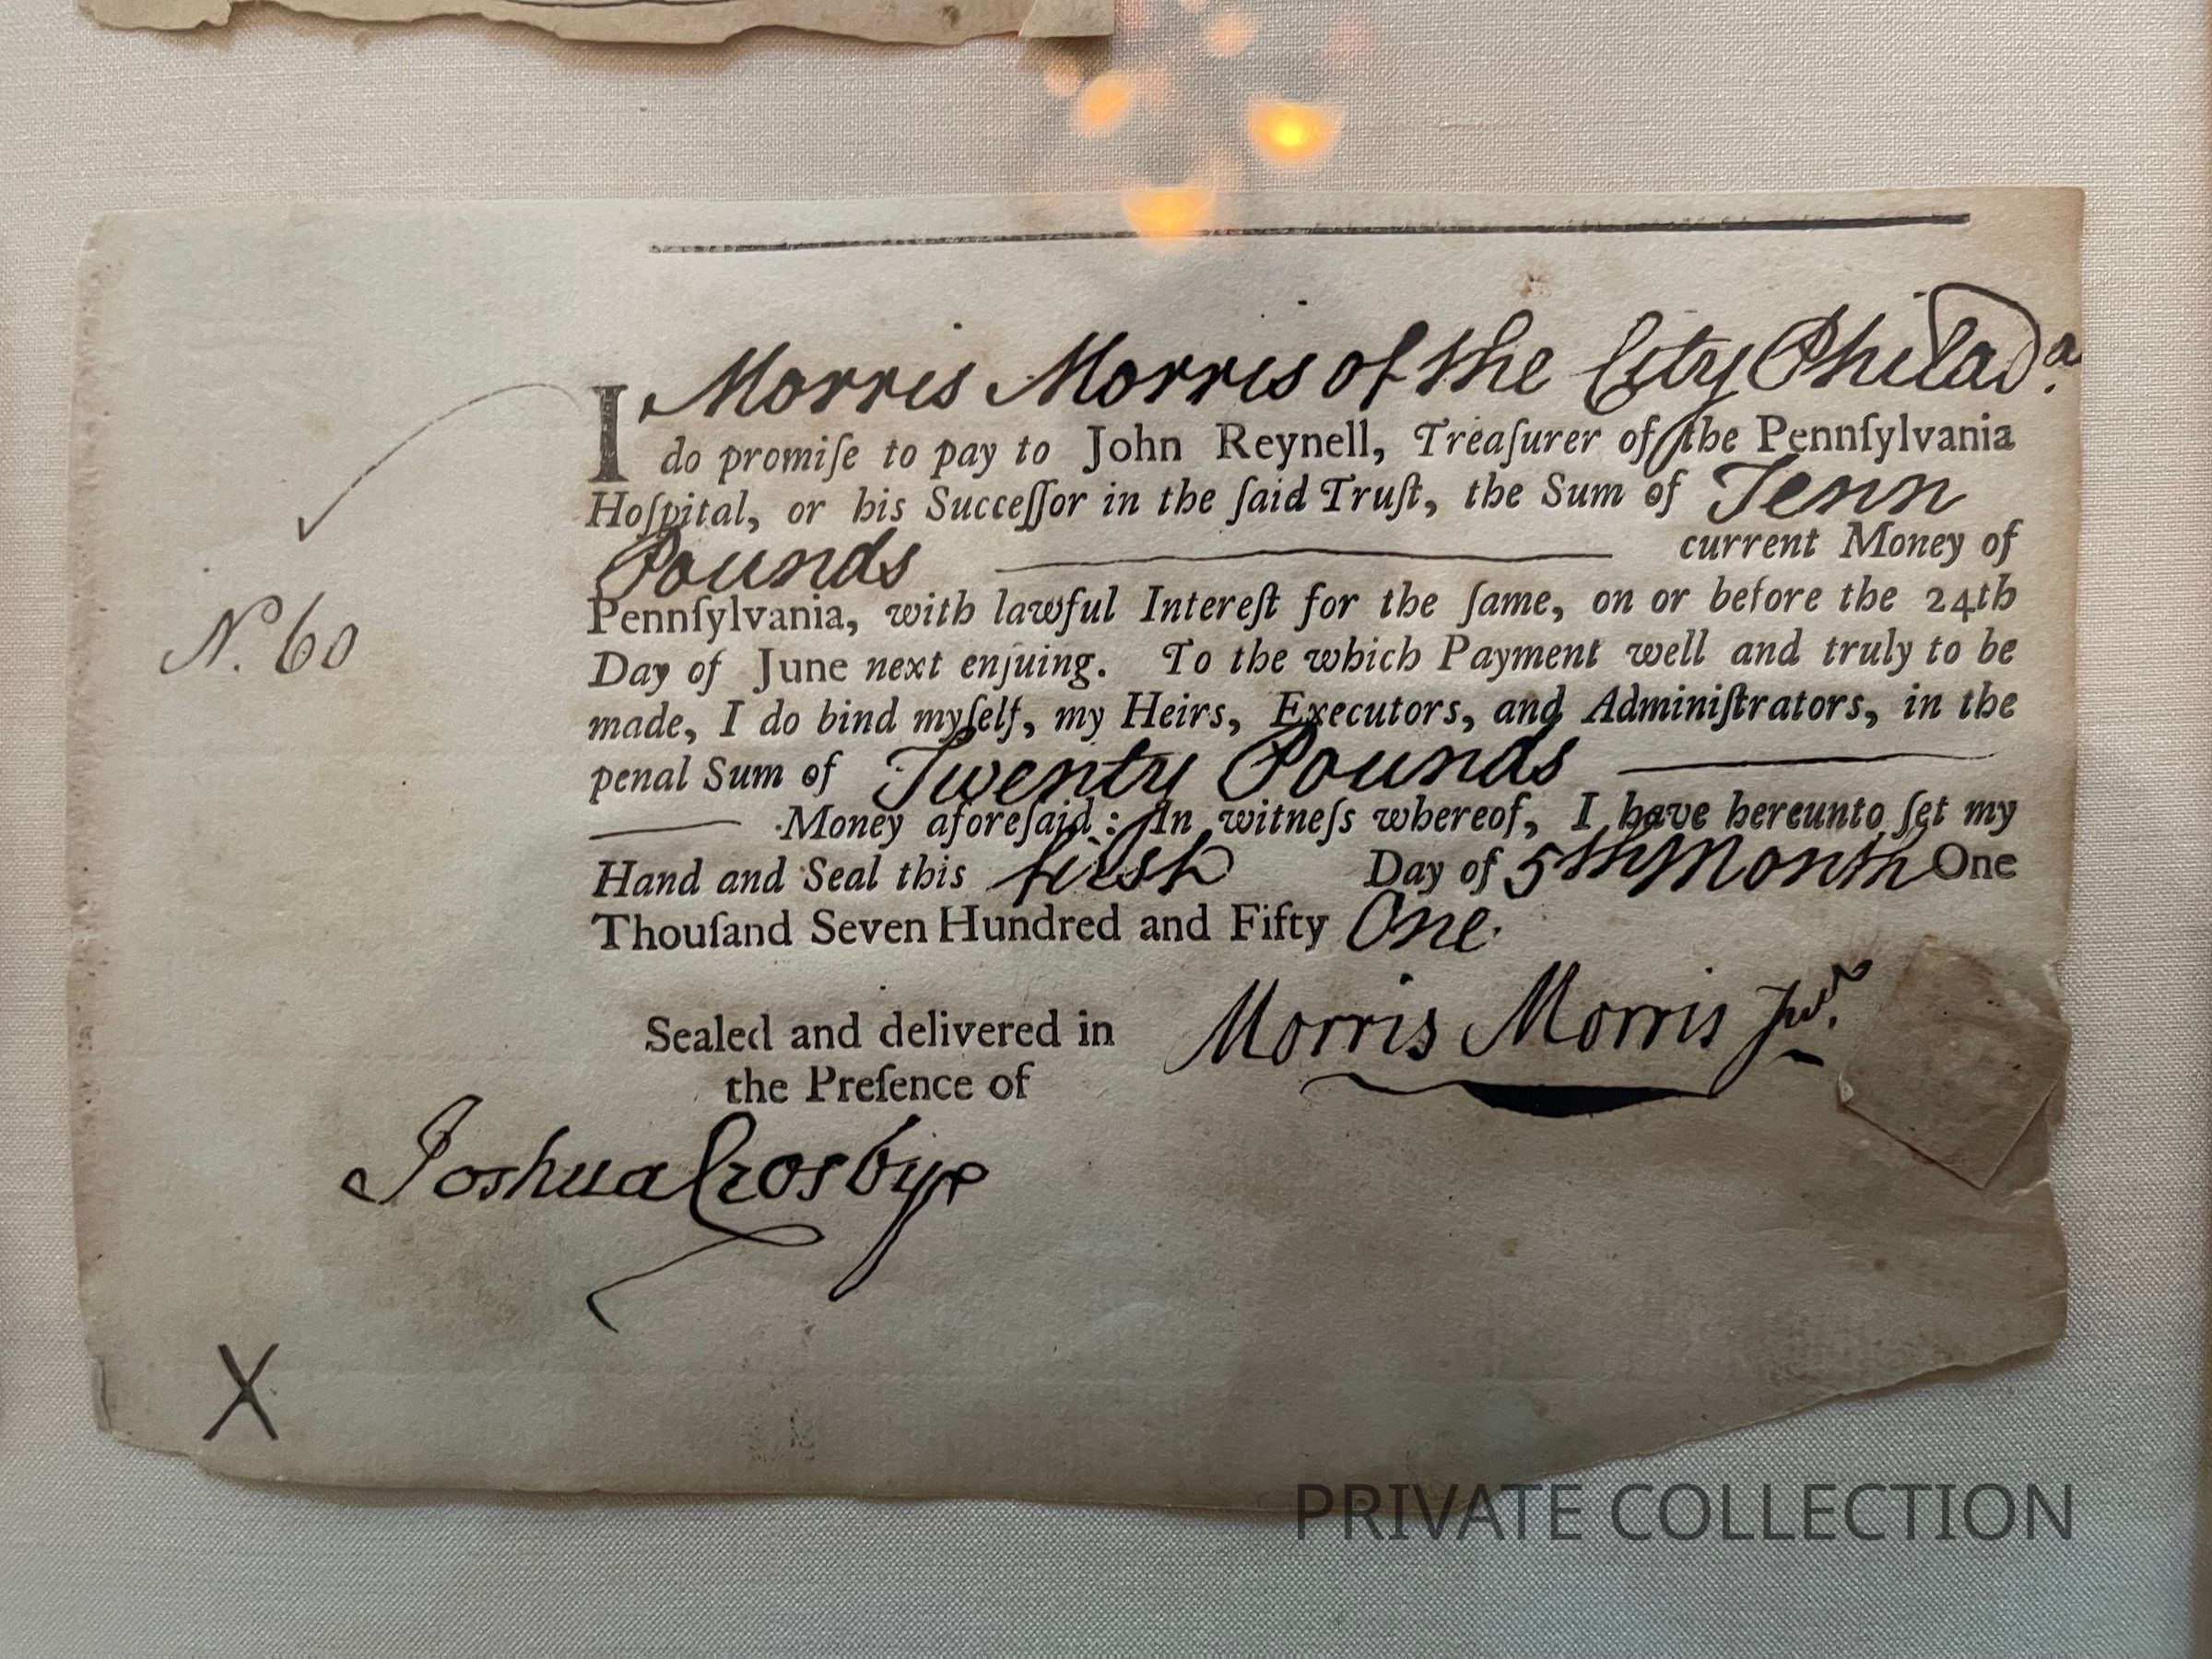 I Morris Morris of the City Philadᵃ.
do promiſe to pay to John Reynell, Treaſurer of the Pennſylvania
Hoſpital, or his Succeſſor in the ſaid Truſt, the Sum of Tenn
Pounds current Money of
Pennſylvania, with lawful Intereſt for the ſame, on or before the 24th
Day of June next enſuing. To the which Payment well and truly to be
made, I do bind myſelf, my Heirs, Executors, and Adminiſtrators, in the
penal Sum of Twenty Pounds
Money aforeſaid: In witneſs whereof, I have hereunto ſet my
Hand and Seal this first Day of 5th Month One
Thouſand Seven Hundred and Fifty One.
N.º 60
Morris Morris Junʳ.
Sealed and delivered in
the Preſence of
Joshua Crosby
X
PRIVATE COLLECTION